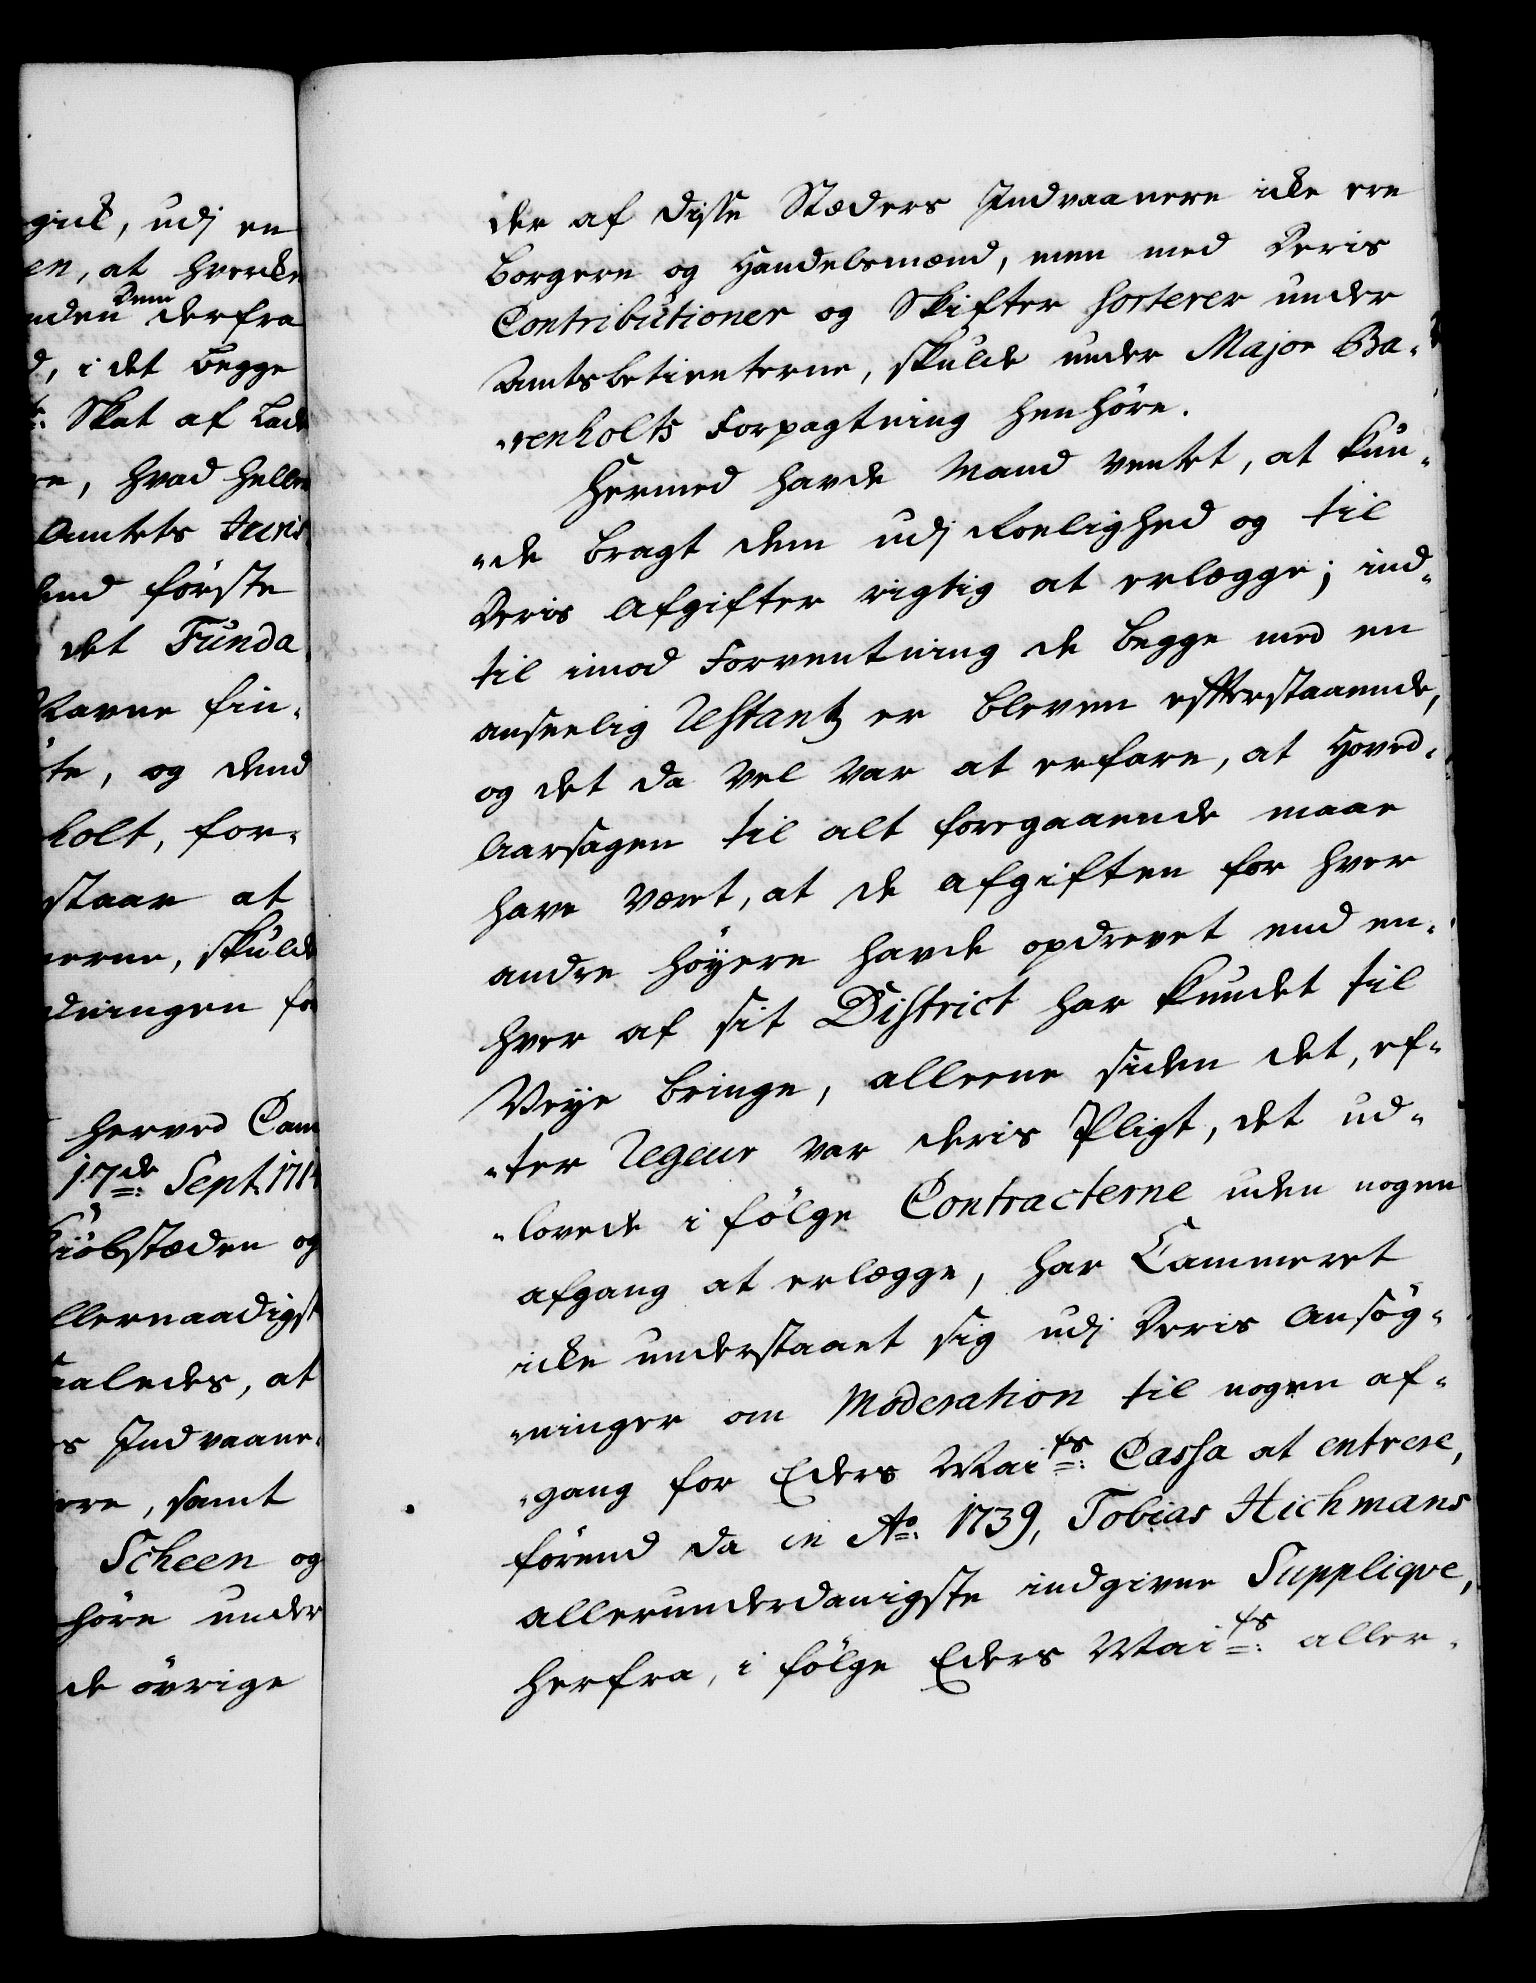 gick, udj en
en, at hverken
nden Dem derfra
d, i det begge
Skat af Lad
re, hvad heller
Amtets Juris
dend förste
det Funda
Navne fin-
te, og dend
holt, for-
staar at
nerne, skulde
dningen for
herved Cam
17de Sept. 171
Kiöbstæden og
llernaadigst
aaledes, at
s Indvaane-
ere, samt
Scheen og
höre under
de övrige
der af disse Stæders Indvaanere icke ere
Borgere og Handelsmænd, men med Deris
Contributioner og Skifter sorterer under
Amtsbetienterne, skulde under Major Ba-
-renholts Forpagtning henhöre.
Hermed havde Mand ventet, at kun-
-de bragt dem udj Roelighed og til
Deris Afgifter rigtig at erlægge; ind-
til imod Forventning de begge med en
anseelig Restantz er bleven efterstaaende,
og det da vel var at erfare, at Hoved-
Aarsagen til alt foregaaende maae
have været, at de afgiften for hver
andre höyere havde opdrevet end en-
hver af sit District har kundet til
Veye bringe, alleene siden det, ef-
-ter Rigeur var deris Pligt, det ud-
-lovede i fölge Contracterne uden nogen
afgang at erlægge, har Cammeret
icke understaaet sig udj Deris Ansög-
-ninger om Moderation til nogen af-
-gang for Eders Maits: Cassa at entrere,
förend da in Ao: 1739, Tobias Hichmans
allerunderdanigste indgivne Supplique,
herfra, i fölge Eders Maits: aller-